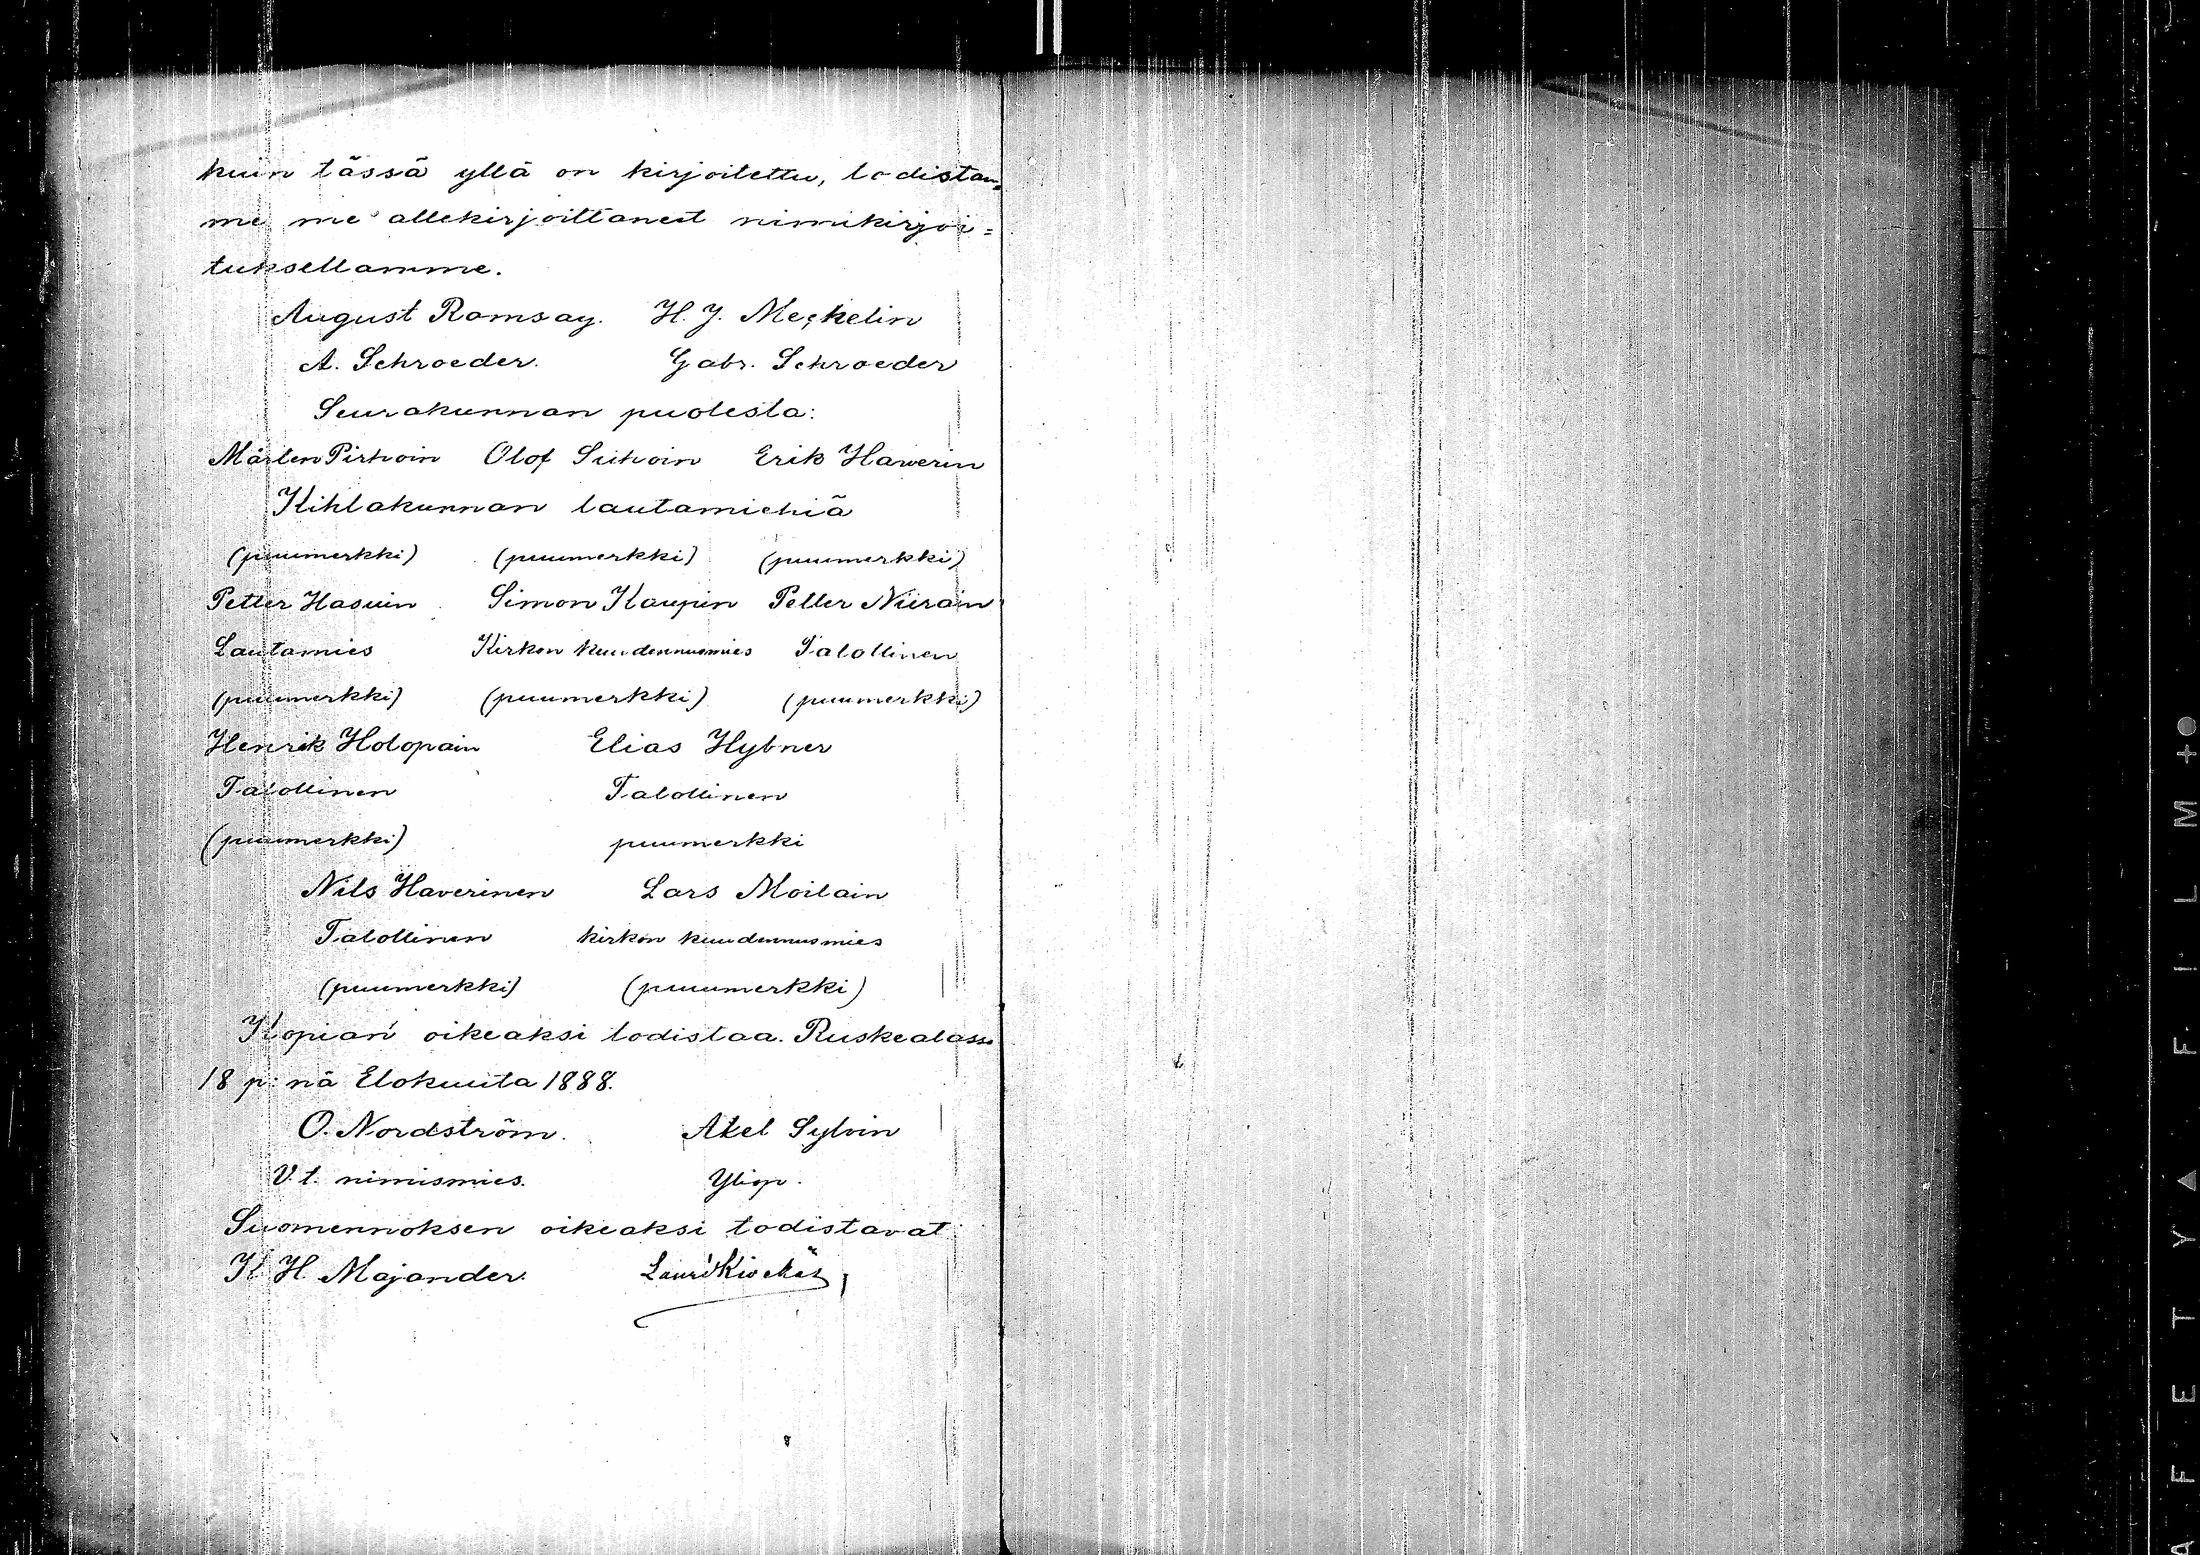 kuin tässä yllä on kirjoitettu, todistam-
me me allekirjoittaneet nimikirjoi=
tuksellamme.
August Ramsay. H. J. Meckelin
A. Schroeder. Gabr. Schroeder
Seurakunnan puolesta:
Mårten Pirhoin Olof Sihvoin Erik Hawerin
Kihlakunnan lautamiehiä
(puumerkki) (puumerkki) (puumerkki)
Petter Hasuin Simon Kaupin Petter Niirain
Lautamies Kirkon kuudennusmies Talollinen
(puumerkki) (puumerkki) (puumerkki)
Henrik Holopain Elias Hybner
Talollinen Talollinen
(puumerkki) puumerkki
Nils Haverinen Lars Moilain
Talollinen kirkon kuudennusmies
(puumerkki) (puumerkki)
Kopian oikeaksi todistaa. Ruskealassa
18 p:nä Elokuuta 1888.
O. Nordström. Axel Sylvin
V. t. nimismies. Yliop.
Suomennoksen oikeaksi todistavat
K H Majander. Lauri Kivekäs
A F E T Y ▲ F I L M +●